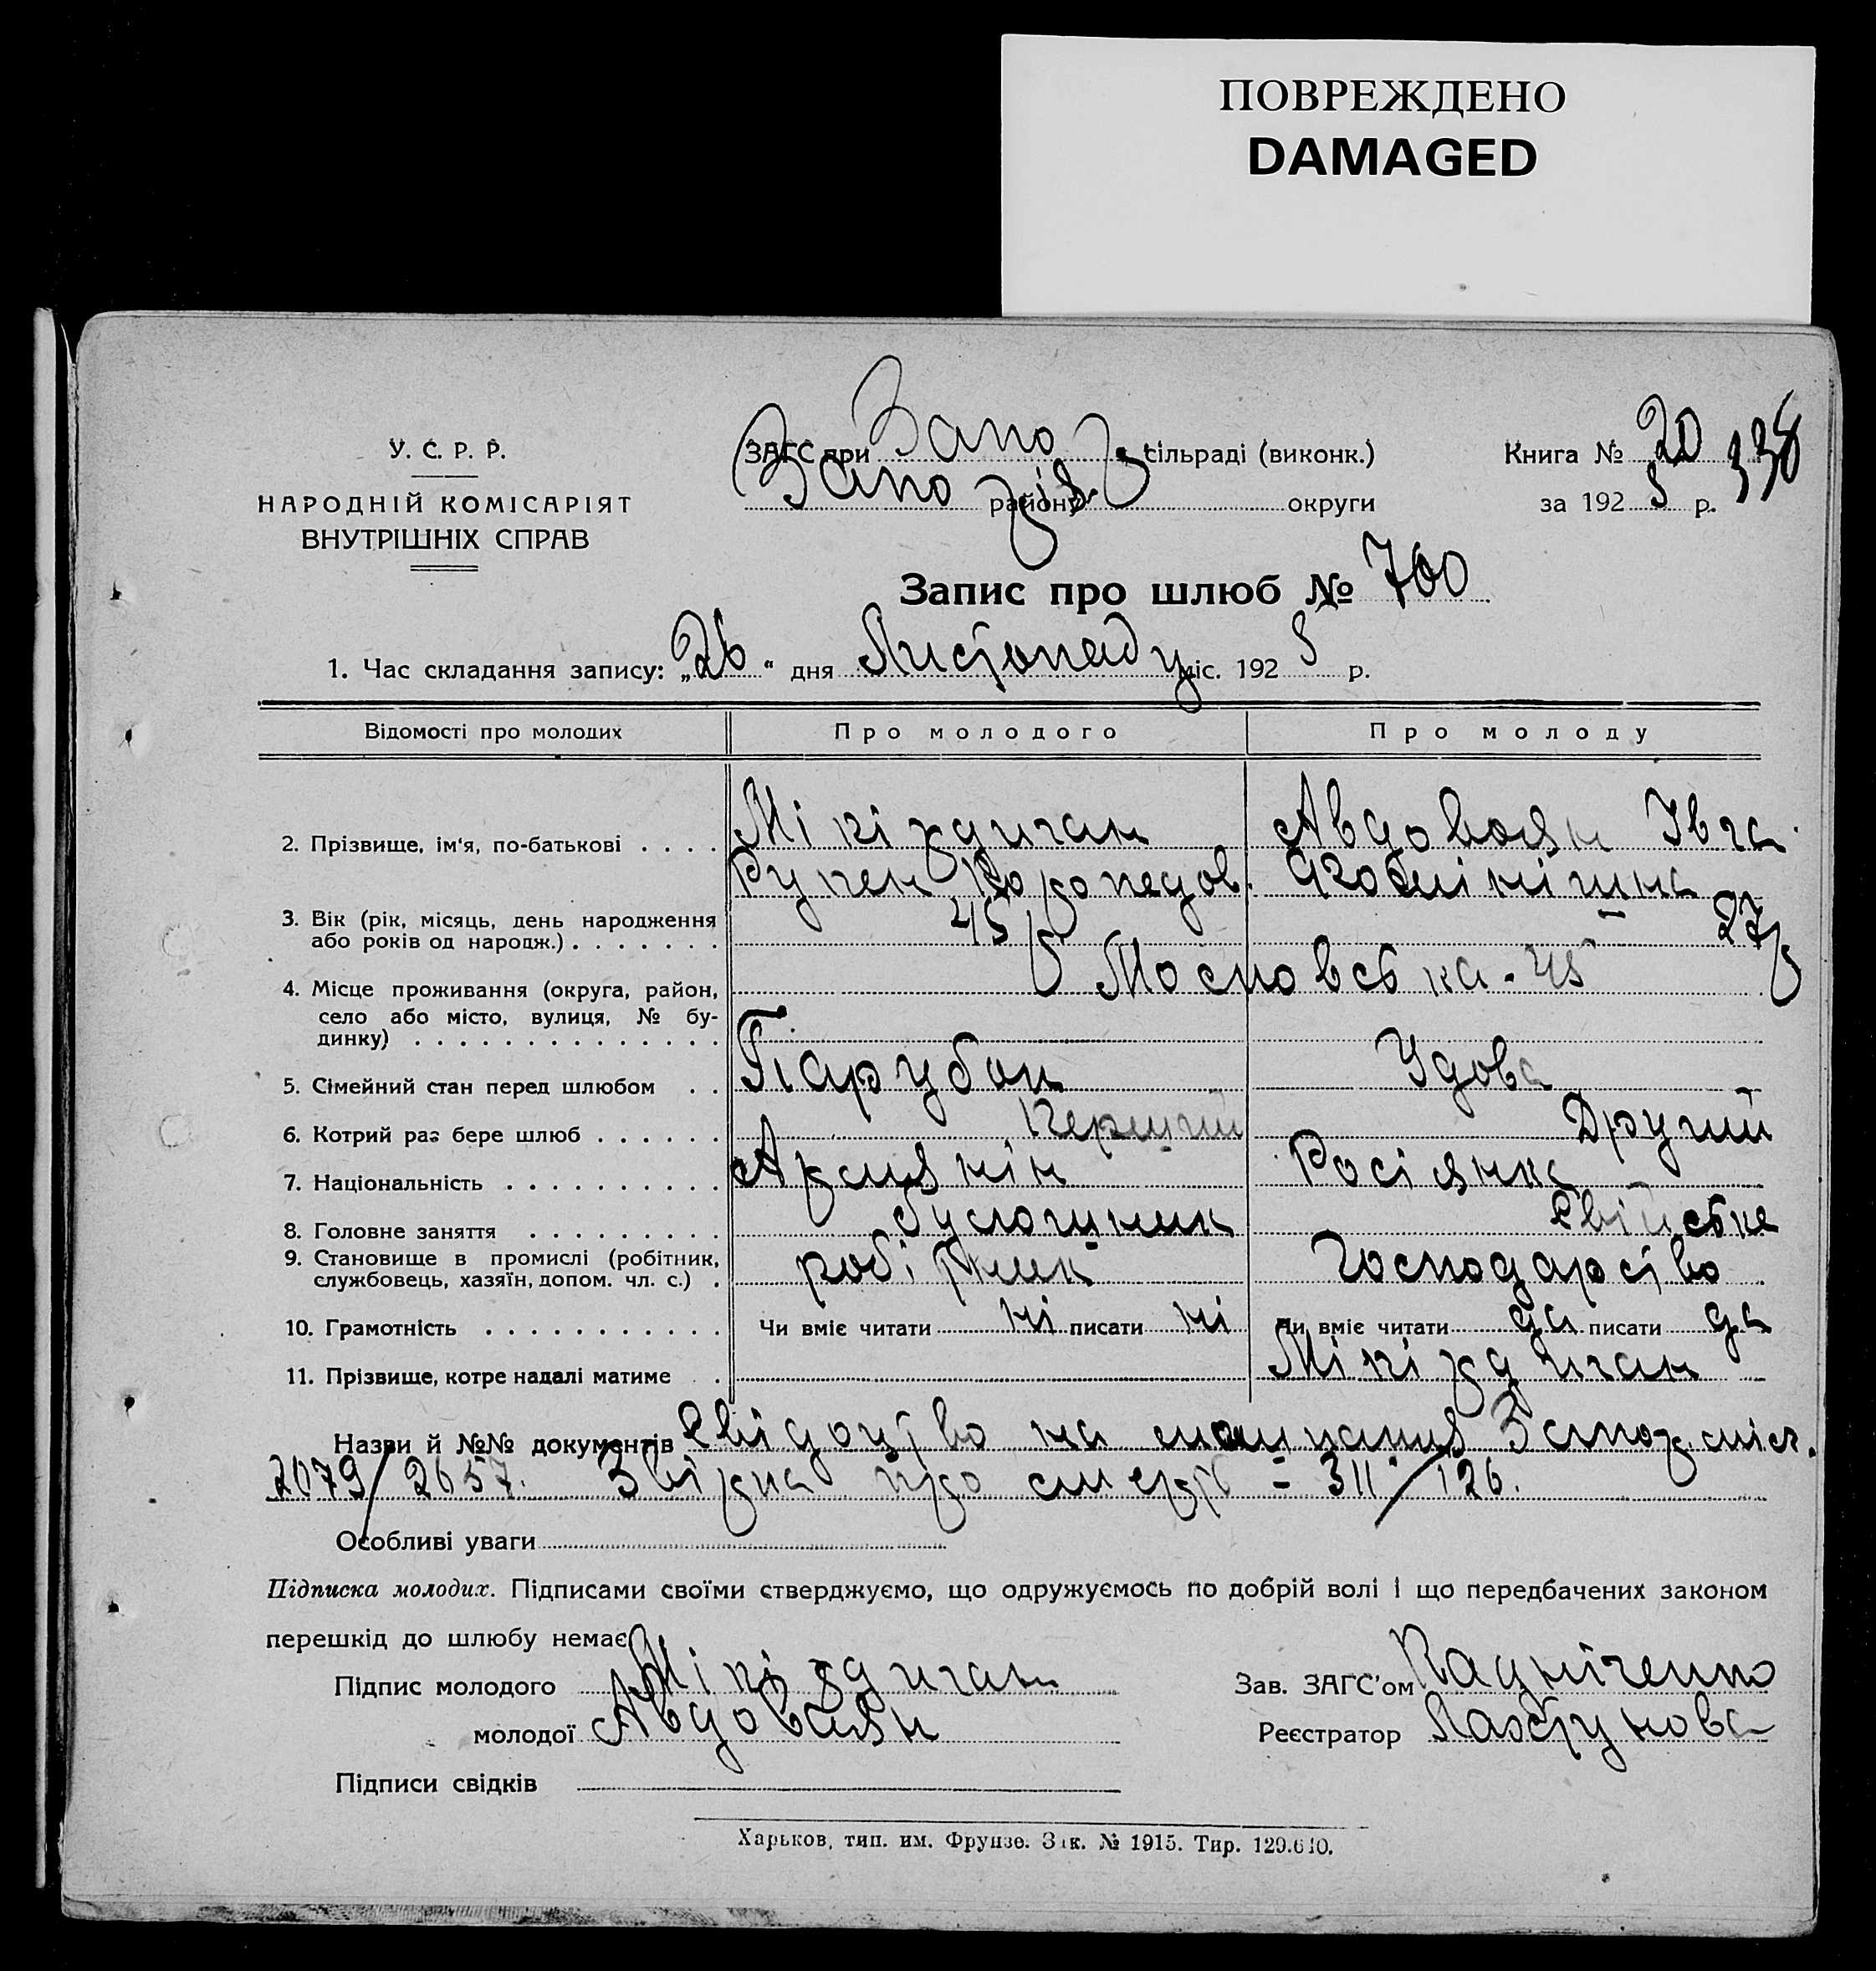 ПОВРЕЖДЕНО
DAMAGED
У. С. Р. Р.
НАРОДНІЙ КОМІСАРІЯТ
ВНУТРІШНІХ СПРАВ
ЗАГС при Запо сільраді (виконк.)
Запо району округи
Книга № 20 338
за 1925 р.
Запис про шлюб № 700
1. Час складання запису: „26" дня Листопаду міс. 1925 р.
Відомості про молодих Про молодого Про молоду
2. Прізвище, ім'я, по-батькові Мікірдичан Авдовоян
Рупен
3. Вік (рік, місяць, день народження або років од народж.) 45 р 27 р
4. Місце проживання (округа, район, село або місто, вулиця, № будинку) Московська - 45
5. Сімейний стан перед шлюбом Парубок Удова
6. Котрий раз бере шлюб Перший Другий
7. Національність Армянін Росіянка
8. Головне заняття Свійське
9. Становище в промислі (робітник, службовець, хазяїн, допом. чл. с.) робітник господарство
10. Грамотність Чи вміє читати ні писати ні Чи вміє читати да писати да
11. Прізвище, котре надалі матиме Мікірдичан
Назви й №№ документів Свідоцтво на мешкання Запор. міск.
2079/2657. Звірка про смерть - 311/126.
Особливі уваги
Підписка молодих. Підписами своїми стверджуємо, що одружуємось по добрій волі і що передбачених законом
перешкід до шлюбу немає
Підпис молодого Мікірдичан Зав. ЗАГС'ом
молодої Авдовоян Реєстратор
Підписи свідків
Харьков, тип. им. Фрунзе. Зак. № 1915. Тир. 129.640.